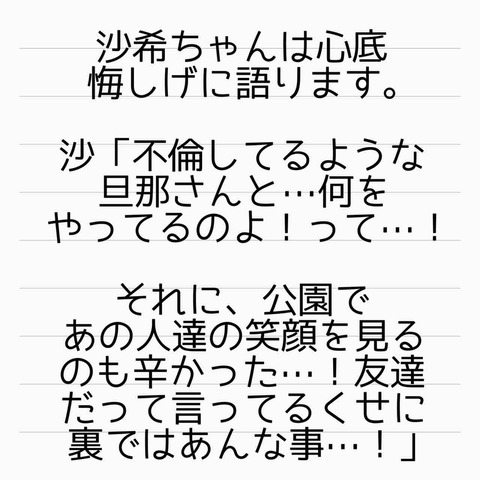 沙希ちゃんは心底
悔しげに語ります。
沙「不倫してるような
旦那さんと…何を
やってるのよ！って…！
それに、公園で
あの人達の笑顔を見る
のも辛かった…！友達
だって言ってるくせに
裏ではあんな事…！」